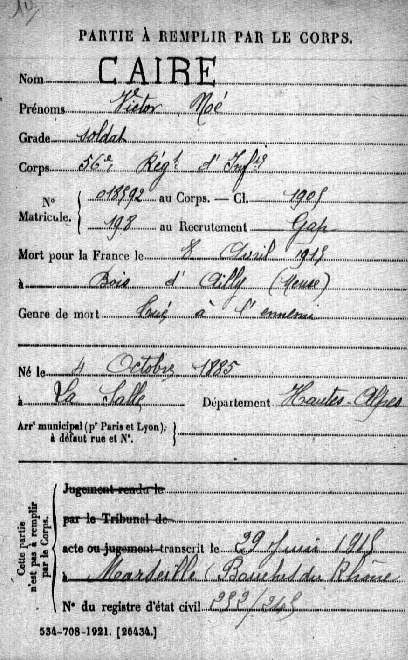 PARTIE À REMPLIR PAR LE CORPS.
Nom CAIRE
Prénoms Victor Noé
Grade soldat
Corps 56e Régt d'Infie
N° Matricule. 018592 au Corps. — Cl. 1905
198 au Recrutement Gap
Mort pour la France le 8 Avril 1915
à Bois d'Ailly (Meuse)
Genre de mort tué à l'ennemi
Né le 4 Octobre 1885
à La Salle Département Hautes-Alpes
Arrt municipal (pr Paris et Lyon),
à défaut rue et N°.
Cette partie n'est pas à remplir par le Corps.
Jugement rendu le
par le Tribunal de
acte ou jugement transcrit le 29 Juin 1915
à Marseille (Bouches du Rhône
N° du registre d'état civil
534-708-1921. [26434.]